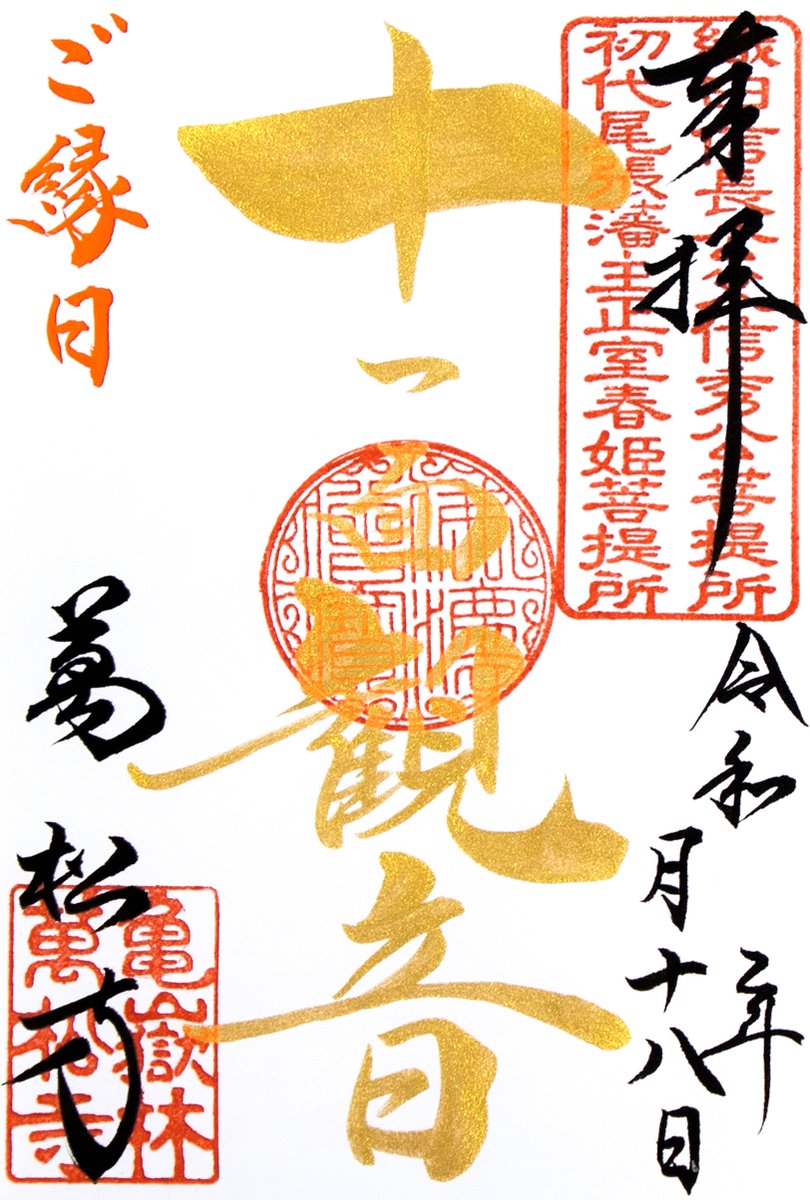 奉拝
織田信長公父信秀公菩提所
初代尾張藩主正室春姫菩提所
令和二年
月十八日
十一面観音
ご縁日
萬松寺
亀嶽林
萬松寺